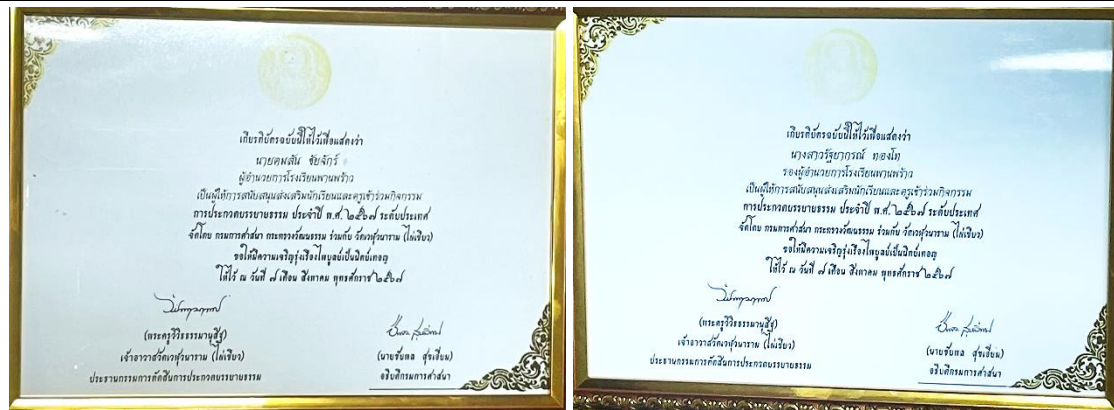 เกียรติบัตรฉบับนี้ให้ไว้เพื่อแสดงว่า
นายคมสัน ชัยจักร์
ผู้อำนวยการโรงเรียนพานพร้าว
เป็นผู้ให้การสนับสนุนส่งเสริมนักเรียนและครูเข้าร่วมกิจกรรม
การประกวดบรรยายธรรม ประจำปี พ.ศ. ๒๕๖๗ ระดับประเทศ
จัดโดย กรมการศาสนา กระทรวงวัฒนธรรม ร่วมกับ วัดเวฬุวนาราม (ไผ่เขียว)
ขอให้มีความเจริญรุ่งเรืองไพบูลย์เป็นนิตย์เทอญ
ให้ไว้ ณ วันที่ ๗ เดือน สิงหาคม พุทธศักราช ๒๕๖๗
(พระครูวิวิธธรรมานุสิฐ)
เจ้าอาวาสวัดเวฬุวนาราม (ไผ่เขียว)
ประธานกรรมการตัดสินการประกวดบรรยายธรรม
(นายชัยพล สุขเอี่ยม)
อธิบดีกรมการศาสนา
เกียรติบัตรฉบับนี้ให้ไว้เพื่อแสดงว่า
นางสาวรัฐยากรณ์ ทองโท
รองผู้อำนวยการโรงเรียนพานพร้าว
เป็นผู้ให้การสนับสนุนส่งเสริมนักเรียนและครูเข้าร่วมกิจกรรม
การประกวดบรรยายธรรม ประจำปี พ.ศ. ๒๕๖๗ ระดับประเทศ
จัดโดย กรมการศาสนา กระทรวงวัฒนธรรม ร่วมกับ วัดเวฬุวนาราม (ไผ่เขียว)
ขอให้มีความเจริญรุ่งเรืองไพบูลย์เป็นนิตย์เทอญ
ให้ไว้ ณ วันที่ ๗ เดือน สิงหาคม พุทธศักราช ๒๕๖๗
(พระครูวิวิธธรรมานุสิฐ)
เจ้าอาวาสวัดเวฬุวนาราม (ไผ่เขียว)
ประธานกรรมการตัดสินการประกวดบรรยายธรรม
(นายชัยพล สุขเอี่ยม)
อธิบดีกรมการศาสนา